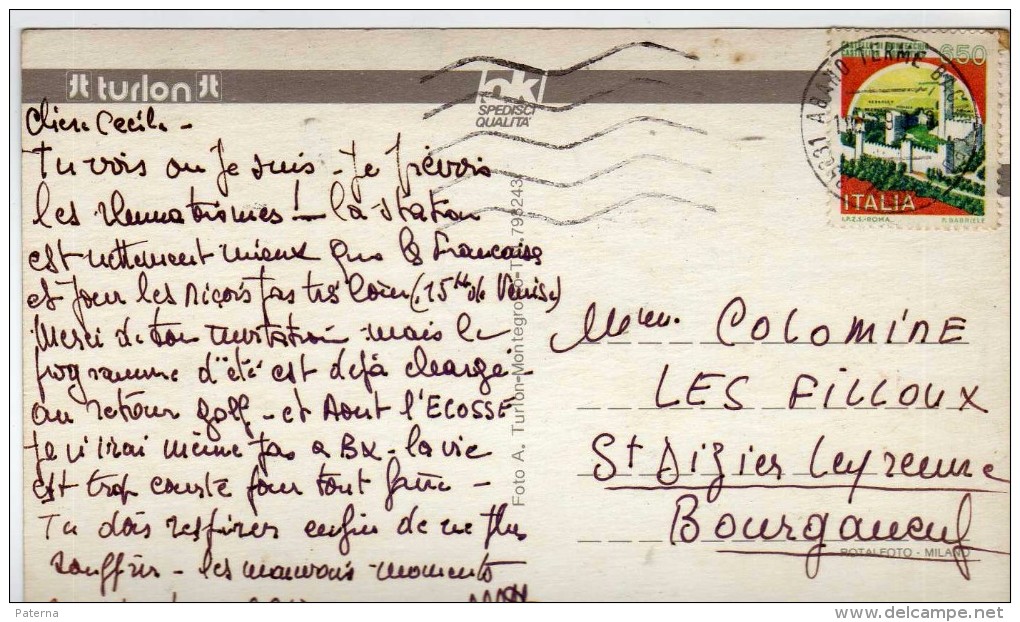 turlon
nk
SPEDISCI
QUALITA'
650
35031 ABANO TERME
ITALIA
I.P.Z.S.-ROMA
P. GABRIELE
Chère Cecile -
Tu vois où je suis - Je prévois
les rhumatismes! - la station
est nettement mieux que les Francaises
et pour les Niçois pas très loin (15 km de Venise)
Merci de ton invitation - mais le
programme d'été est déjà chargé -
au retour golf - et Aout l'ECOSSE
Je n'irai même pas à BX - la vie
est trop courte pour tout faire -
Tu dois respirer enfin de ne plus
souffrir - les mauvais moments
Foto A. Turlon-Montegrotto-T. 793243
Mme. COLOMINE
LES FILLOUX
St Dizier Leyrenne
Bourganeuf
ROTALFOTO - MILANO
Paterna
www.delcampe.net